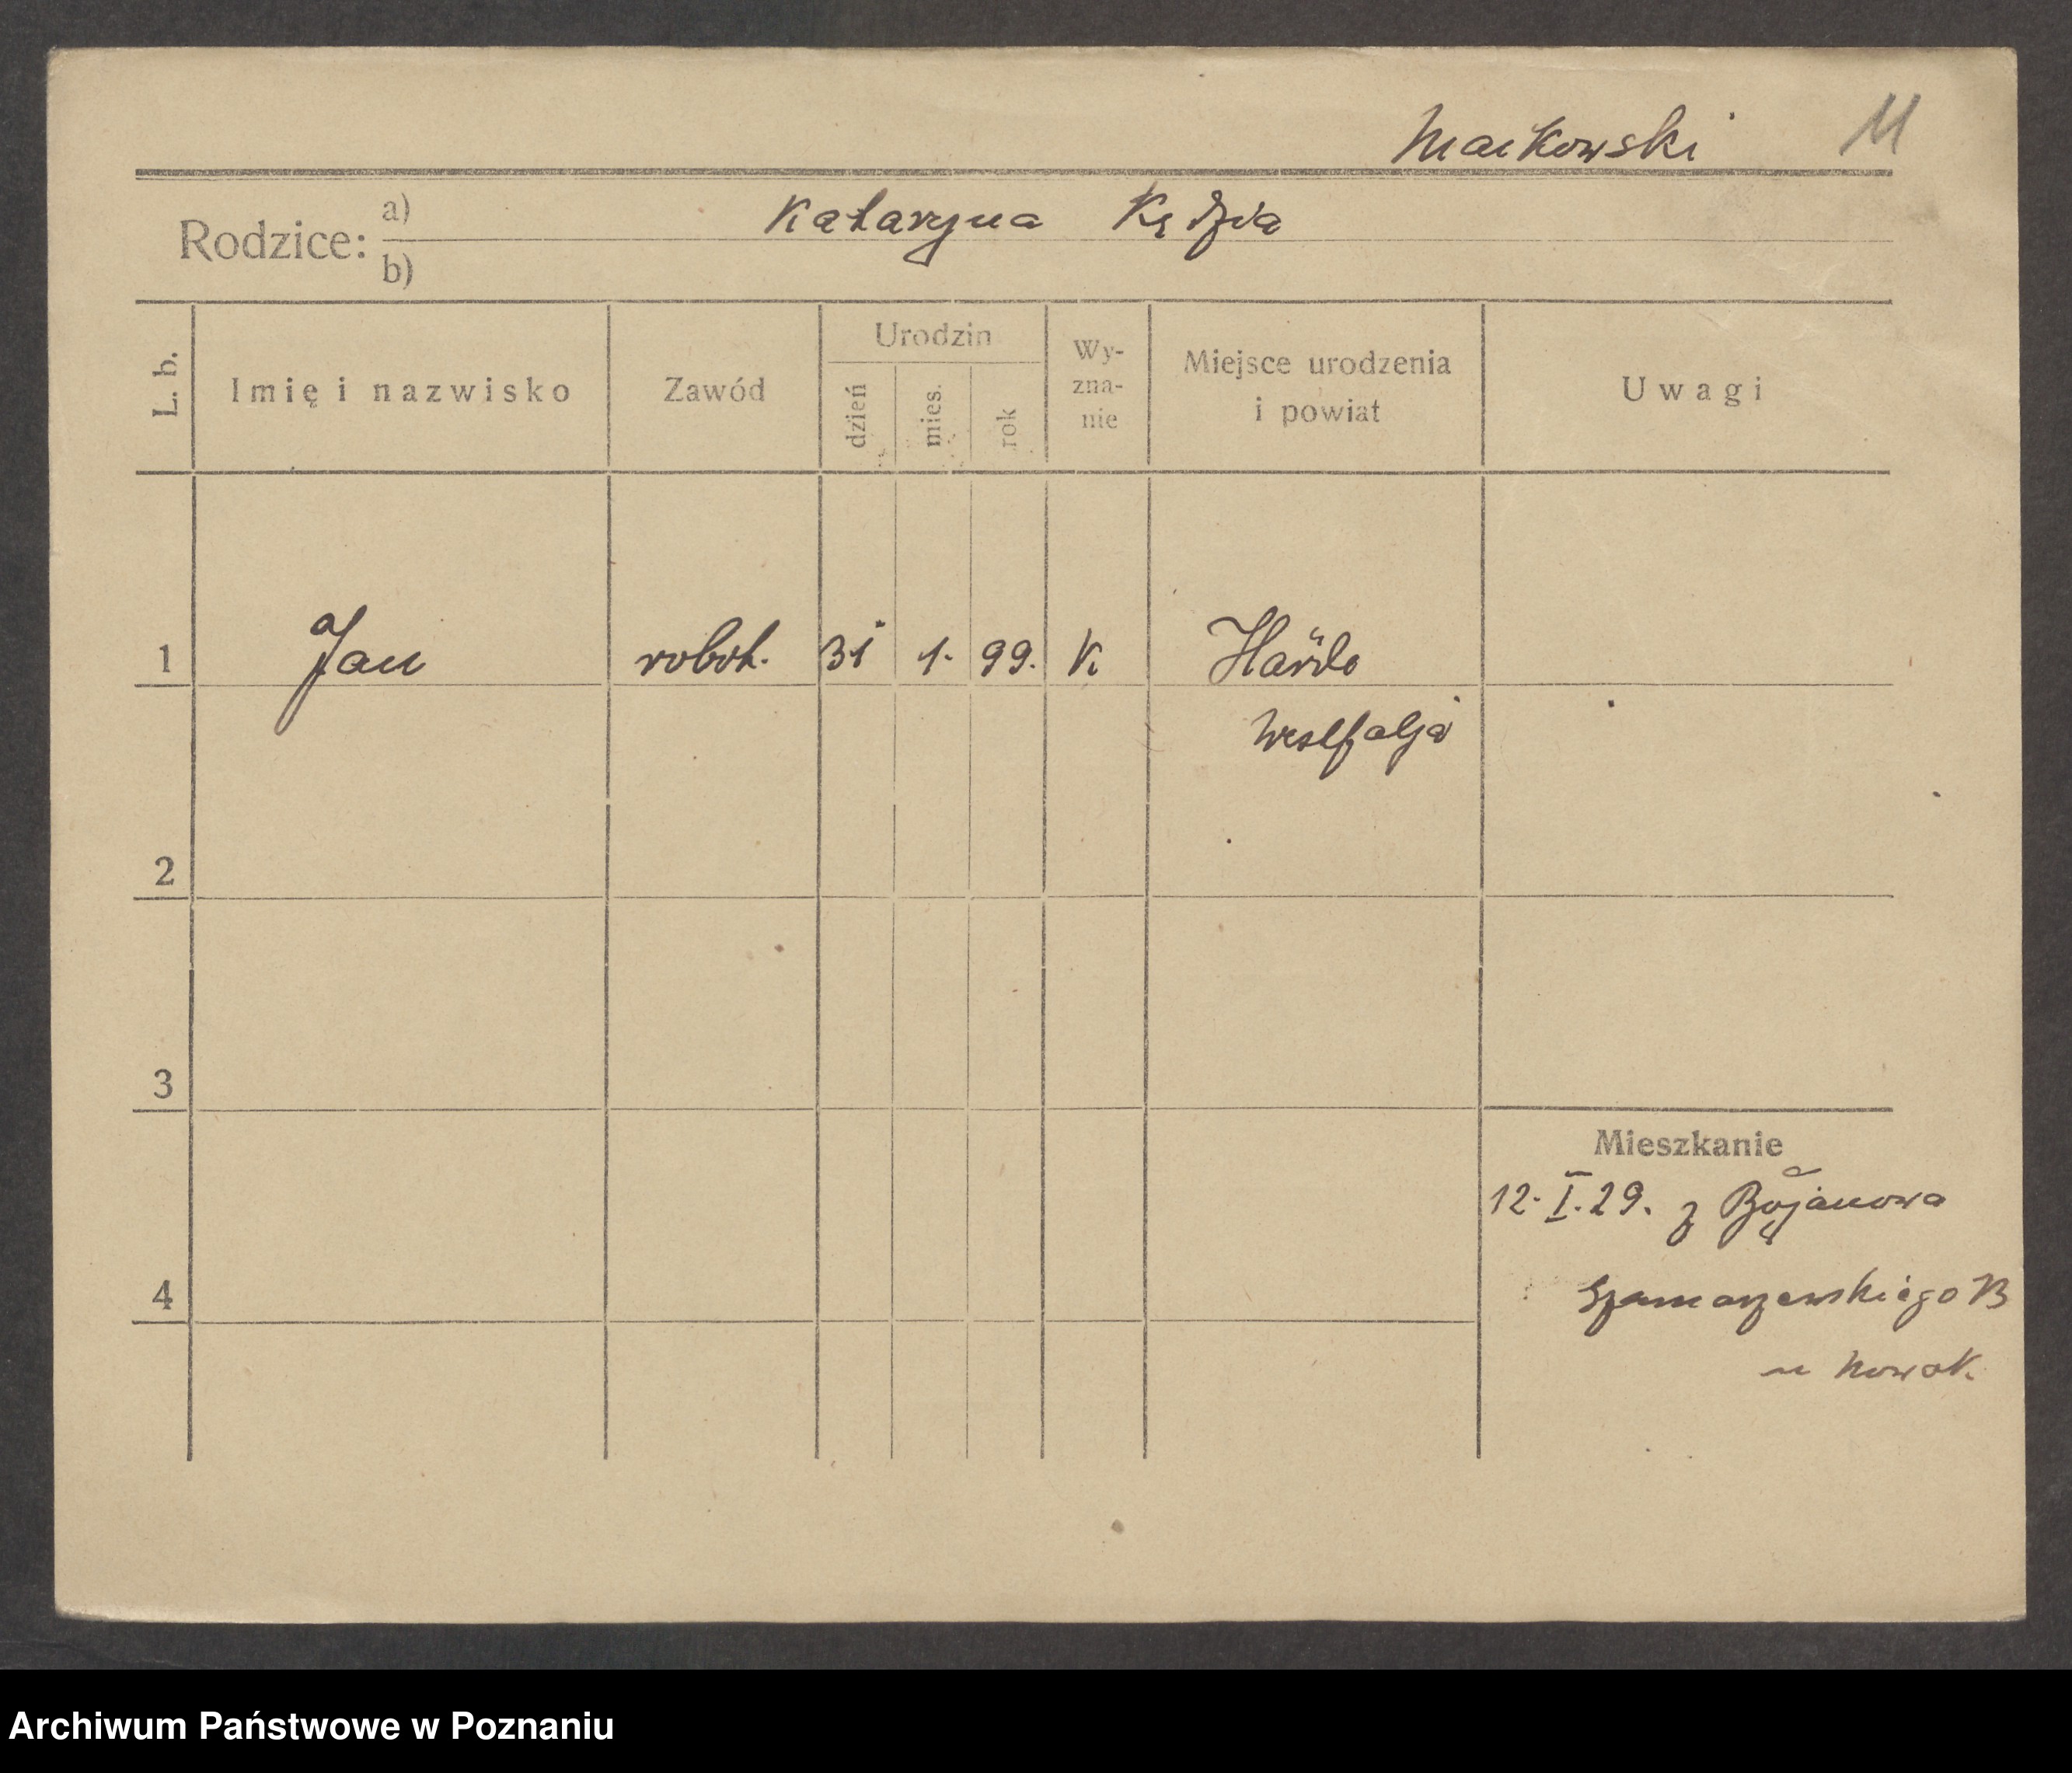 Maćkowski M
Rodzice: a) Katarzyna Kędzia
b)
L. b. Imię i nazwisko Zawód Urodzin dzień mies. rok Wy-zna-nie Miejsce urodzenia i powiat Uwagi
1 Jan robot. 31 1. 99. K
Westfalja
2
3
Mieszkanie
12. I. 29. z Bojanowa
4 Szamarzewskiego
u Nowak
Archiwum Państwowe w Poznaniu